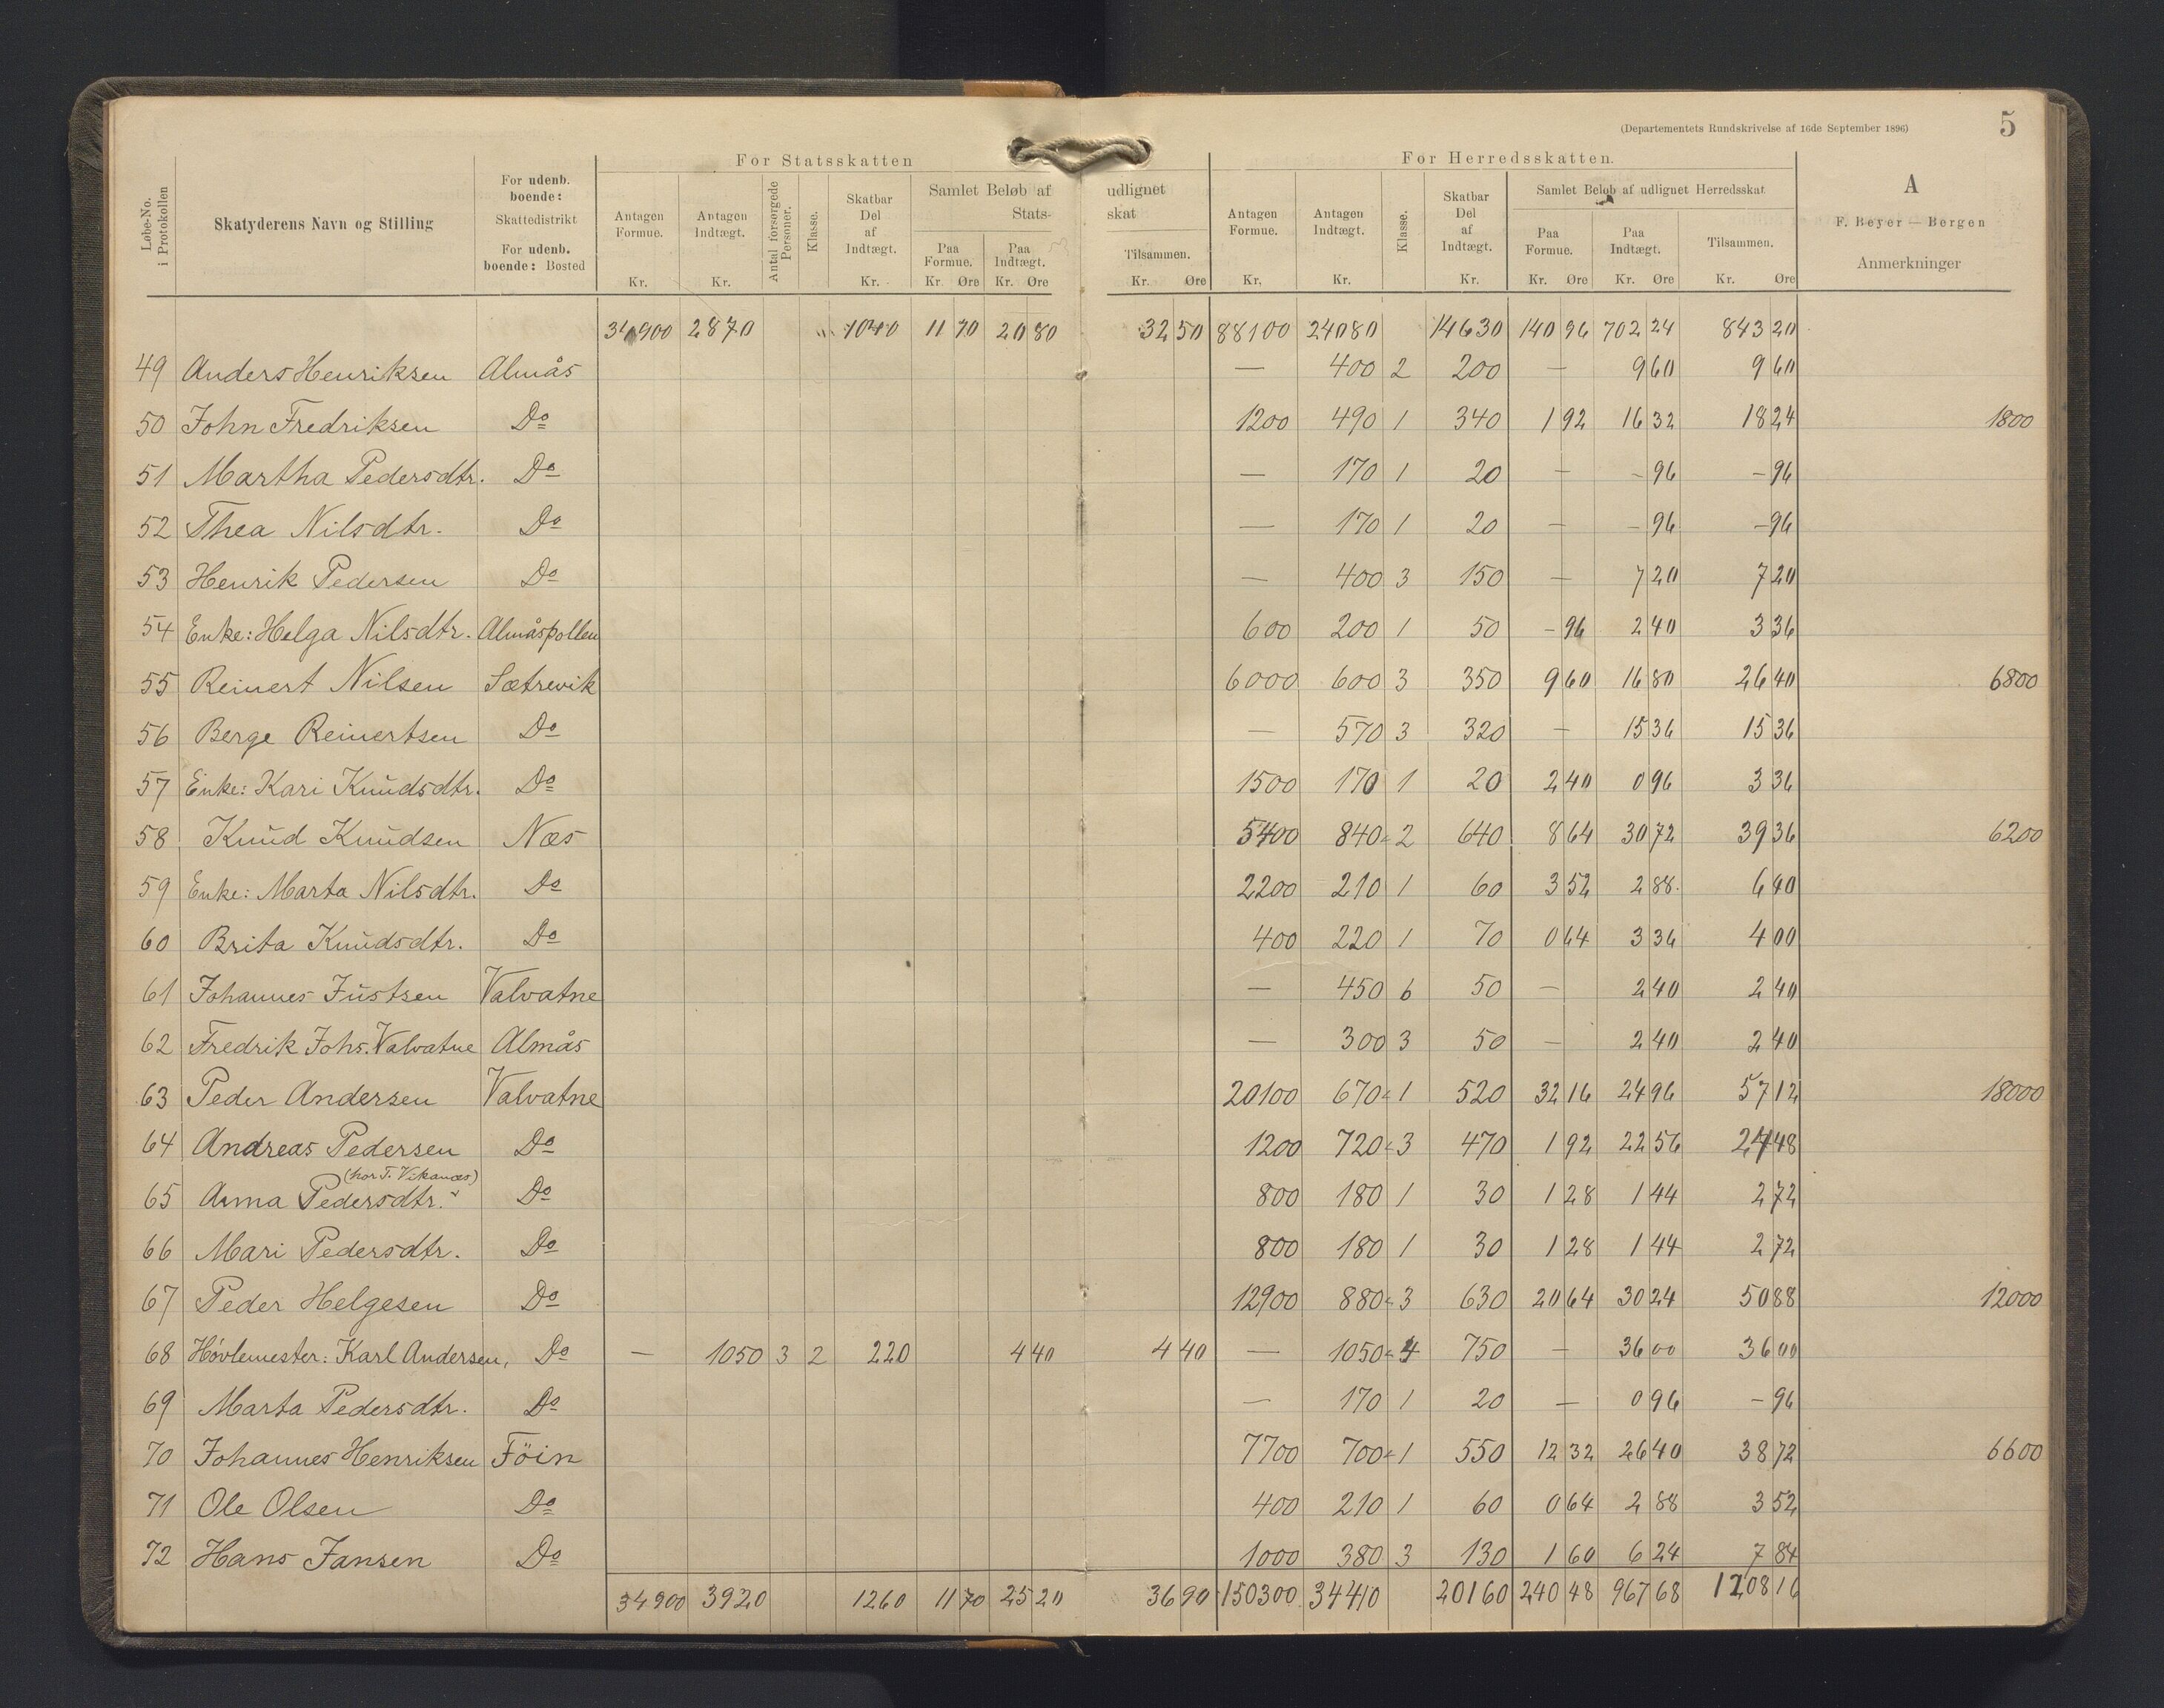 (Departementets Rundskrivelse af 16de September 1896) 5
For Statsskatten For Herredsskatten.
Løbe-No. i Protokollen
Skatyderens Navn og Stilling
For udenb. boende:
Skattedistrikt
For udenb. boende: Bosted
Antagen Formue. Kr.
Antagen Indtægt. Kr.
Antal forsørgede Personer.
Klasse.
Skatbar Del af Indtægt. Kr.
Samlet Beløb af udlignet Stats-skat
Paa Formue. Kr. Øre
Paa Indtægt. Kr. Øre
Tilsammen. Kr. Øre
Antagen Formue. Kr.
Antagen Indtægt. Kr.
Klasse.
Skatbar Del af Indtægt. Kr.
Samlet Beløb af udlignet Herredsskat
Paa Formue. Kr. Øre
Paa Indtægt. Kr. Øre
Tilsammen. Kr. Øre
A
F. Beyer — Bergen
Anmerkninger
34900 2870 1040 11 70 20 80 32 50 88100 24080 14630 140 96 702 24 843 20
49 Anders Henriksen Almås — 400 2 200 — 9 60 9 60
50 John Fredriksen Do 1200 490 1 340 1 92 16 32 18 24 1800
51 Martha Pedersdtr. Do — 170 1 20 — – 96 – 96
52 Thea Nilsdtr. Do — 170 1 20 — – 96 – 96
53 Henrik Pedersen Do — 400 3 150 — 7 20 7 20
54 Enke: Helga Nilsdtr. Almåspollen 600 200 1 50 – 96 2 40 3 36
55 Reinert Nilsen Sætrevik 6000 600 3 350 9 60 16 80 26 40 6800
56 Berge Reinertsen Do — 570 3 320 — 15 36 15 36
57 Enke: Kari Knudsdtr. Do 1500 170 1 20 2 40 0 96 3 36
58 Knud Knudsen Næs 5400 840 2 640 8 64 30 72 39 36 6200
59 Enke: Marta Nilsdtr. Do 2200 210 1 60 3 52 2 88 6 40
60 Brita Knudsdtr. Do 400 220 1 70 0 64 3 36 4 00
61 Johannes Justsen Valvatne — 450 6 50 — 2 40 2 40
62 Fredrik Johs. Valvatne Almås — 300 3 50 — 2 40 2 40
63 Peder Andersen Valvatne 20100 670 1 520 32 16 24 96 57 12 18000
64 Andreas Pedersen Do 1200 720 3 470 1 92 22 56 24 48
(hor T. Vikanæs)
65 Anna Pedersdtr. Do 800 180 1 30 1 28 1 44 2 72
66 Mari Pedersdtr. Do 800 180 1 30 1 28 1 44 2 72
67 Peder Helgesen Do 12900 880 3 630 20 64 30 24 50 88 12000
68 Hövlemester: Karl Andersen, Do — 1050 3 2 220 4 40 4 40 — 1050 4 750 — 36 00 36 00
69 Marta Pedersdtr. Do — 170 1 20 — 0 96 – 96
70 Johannes Henriksen Föin 7700 700 1 550 12 32 26 40 38 72 6600
71 Ole Olsen Do 400 210 1 60 0 64 2 88 3 52
72 Hans Jansen Do 1000 380 3 130 1 60 6 24 7 84
34900 3920 1260 11 70 25 20 36 90 150300 34410 20160 240 48 967 68 1208 16